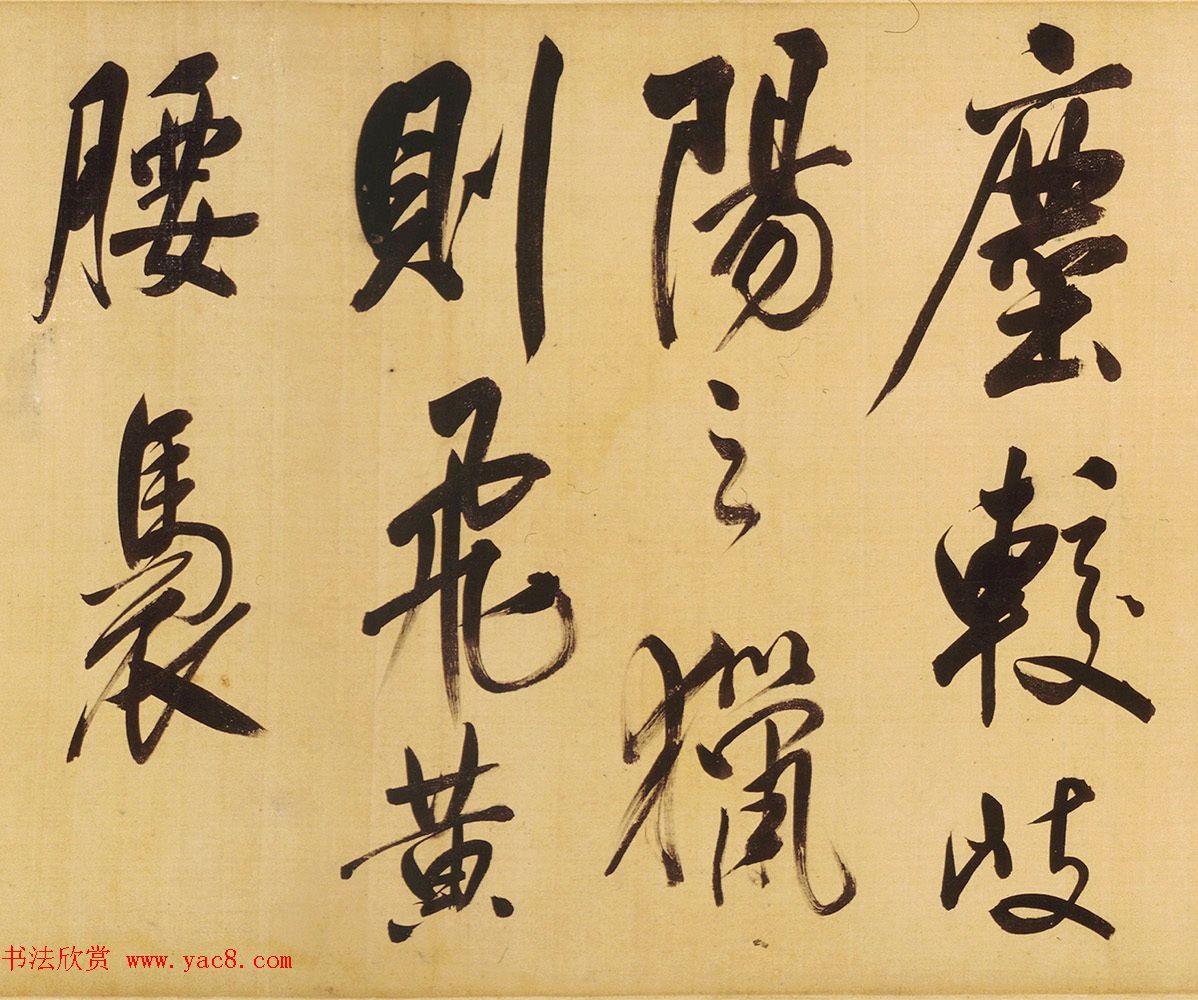 塵較歧
陽之獵
則飛黃
腰褭
书法欣赏 www.yac8.com